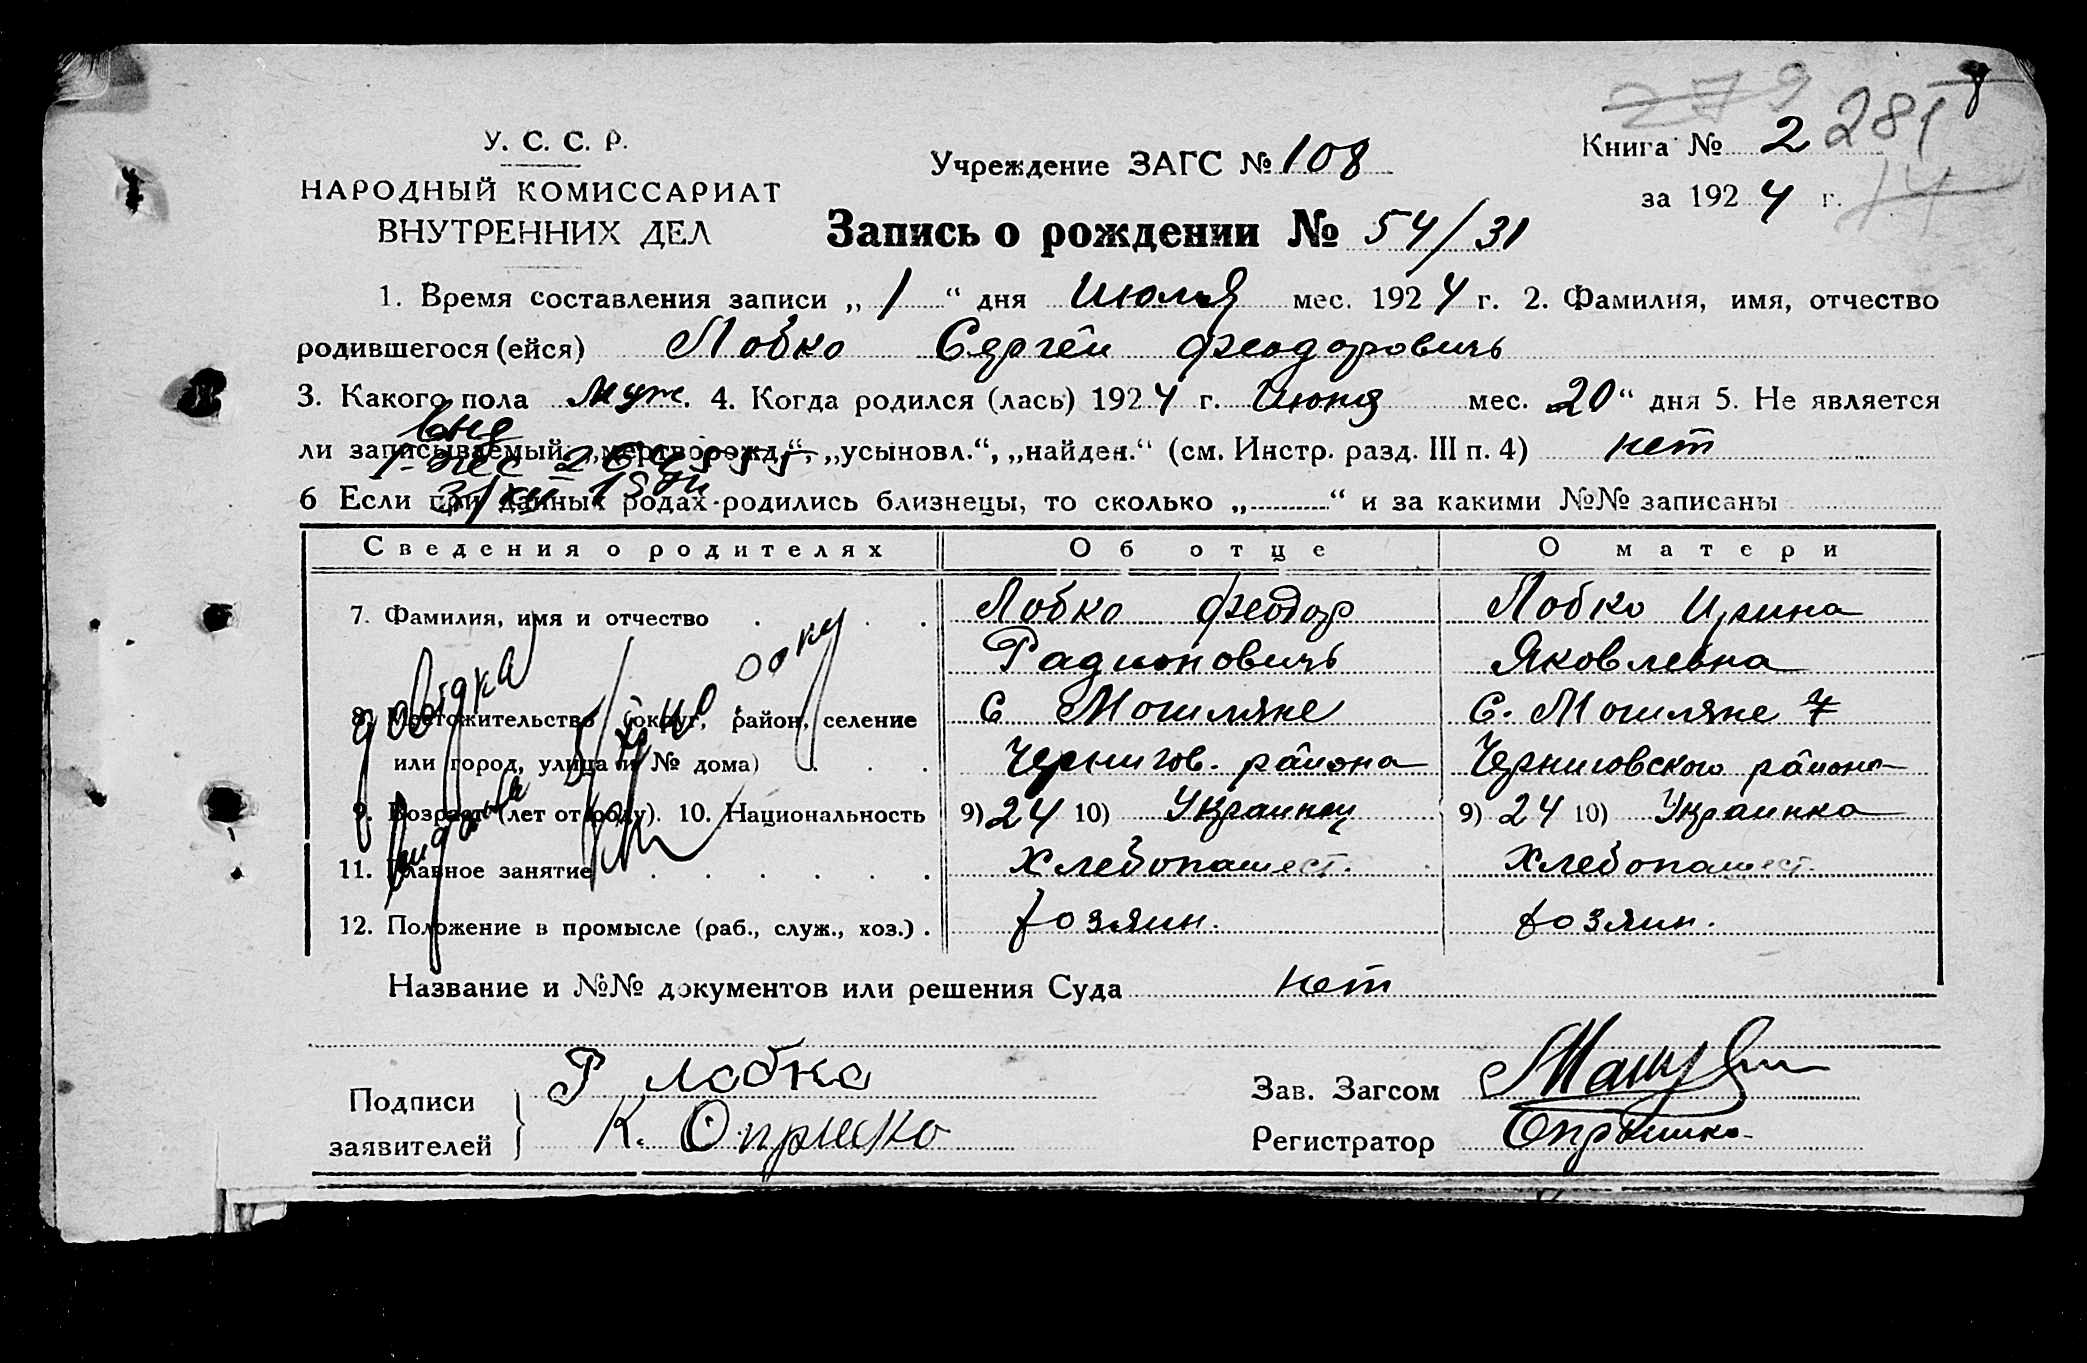 279 281
У. С. С. Р.
НАРОДНЫЙ КОМИССАРИАТ
ВНУТРЕННИХ ДЕЛ
Учреждение ЗАГС № 108
Книга № 2
за 1924 г. 14
Запись о рождении № 54/31
1. Время составления записи „1“ дня Июля мес. 1924 г. 2. Фамилия, имя, отчество
родившегося (ейся) Лобко Сергей Феодоровичь
3. Какого пола Муж. 4. Когда родился (лась) 1924 г. Июня мес. 20“ дня 5. Не является
ли записываемый: „мертворожд.“, „усыновл.“, „найден.“ (см. Инстр. разд. III п. 4) нет
6 Если при данных родах родились близнецы, то сколько „ “ и за какими №№ записаны
Сведения о родителях Об отце О матери
7. Фамилия, имя и отчество Лобко Феодор Лобко Ирина
Радионовичь Яковлевна
8. Местожительство (округ, район, селение С Могиляне С. Могиляне
или город, улица и № дома) Чернигов. района Черниговского района
9. Возраст (лет от роду). 10. Национальность 9) 24 10) Украинец 9) 24 10) Украинка
11. Главное занятие Хлебопашест. Хлебопашест.
12. Положение в промысле (раб., служ., хоз.) хозяин. хозяин.
довідка
видана
Название и №№ документов или решения Суда нет
Подписи
заявителей
Р Лобко
К. Опришко
Зав. Загсом
Регистратор Опришко